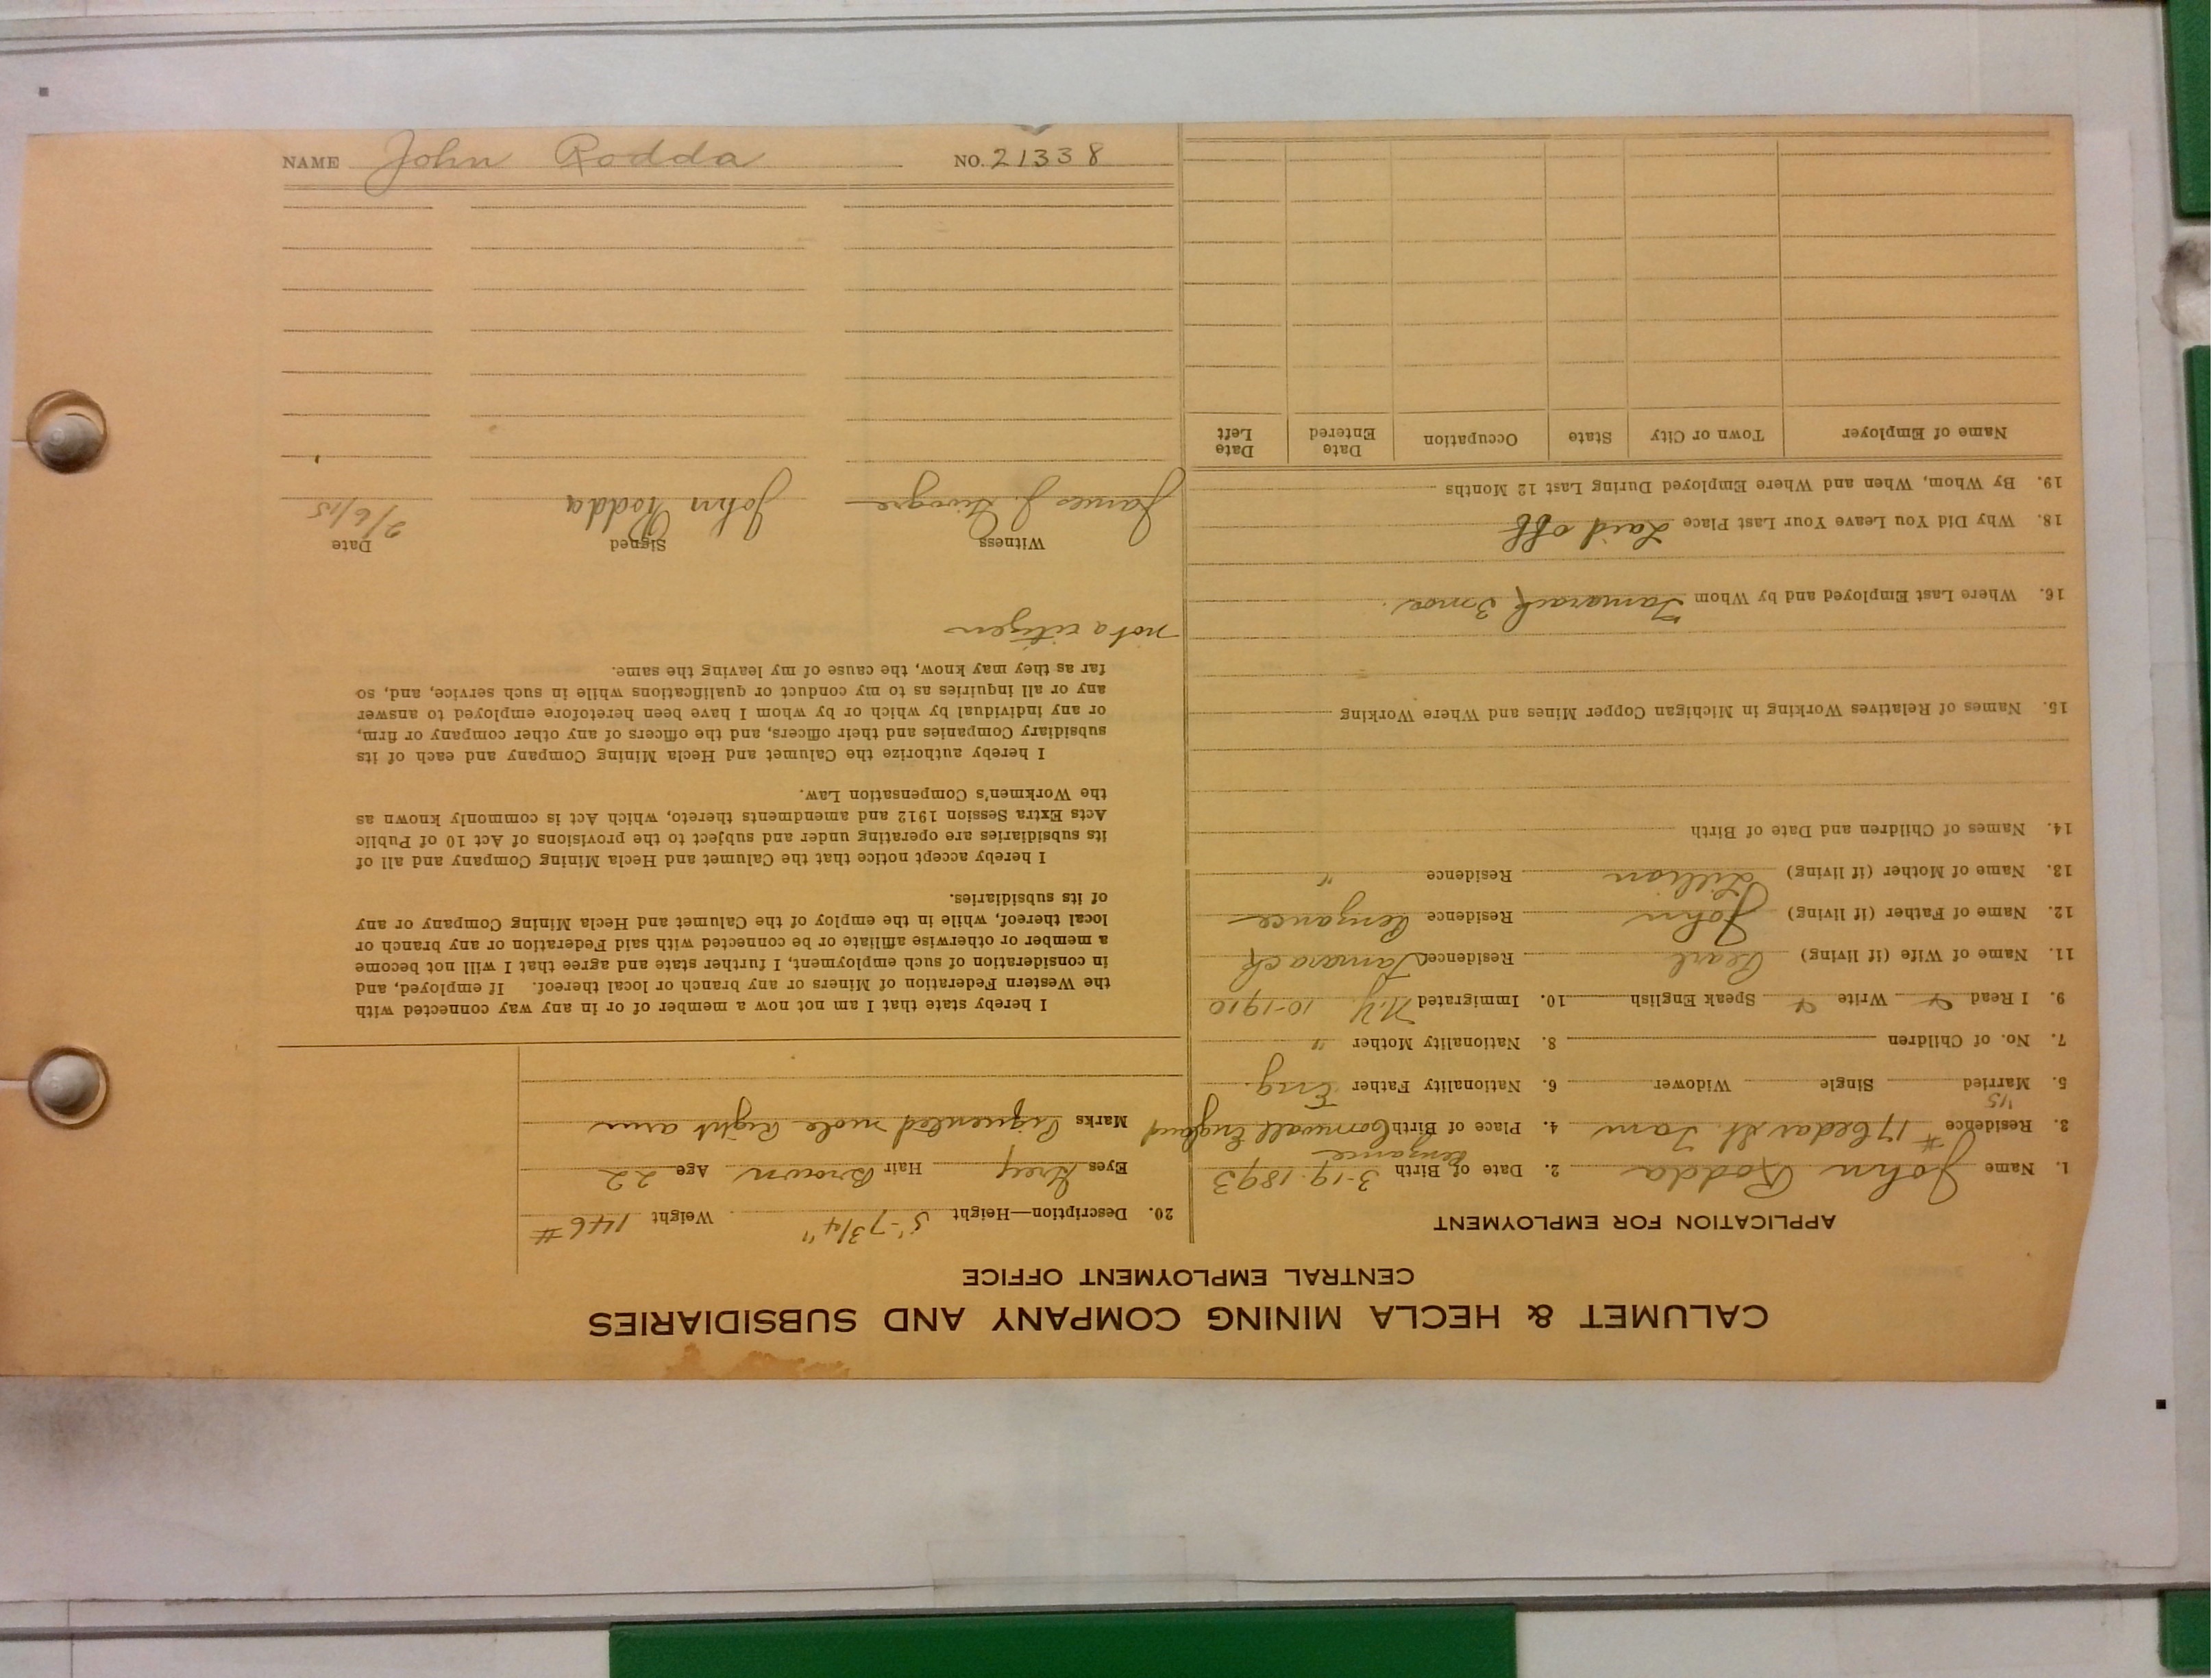 CALUMET & HECLA MINING COMPANY AND SUBSIDIARIES
CENTRAL EMPLOYMENT OFFICE
APPLICATION FOR EMPLOYMENT
1. Name John Rodda 2. Date of Birth 3-19-1893
Penzance
3. Residence #17 Cedar St. Tam 4. Place of Birth Cornwall England
5. Married Single Widower 6. Nationality Father Eng.
7. No. of Children 8. Nationality Mother "
9. I Read Write Speak English 10. Immigrated N.Y. 10-1910
11. Name of Wife (if living) Pearl Residence Tamarack
12. Name of Father (if living) John Residence Penzance
13. Name of Mother (if living) Lillian Residence "
14. Names of Children and Date of Birth
15. Names of Relatives Working in Michigan Copper Mines and Where Working
16. Where Last Employed and by Whom Tamarack 3 mos.
18. Why Did You Leave Your Last Place Laid off
19. By Whom, When and Where Employed During Last 12 Months
Name of Employer Town or City State Occupation Date Entered Date Left
20. Description—Height 5'-7 3/4" Weight 146 #
Eyes Grey Hair Brown Age 22
Marks Pigmented mole Right arm
I hereby state that I am not now a member of or in any way connected with
the Western Federation of Miners or any branch or local thereof. If employed, and
in consideration of such employment, I further state and agree that I will not become
a member or otherwise affiliate or be connected with said Federation or any branch or
local thereof, while in the employ of the Calumet and Hecla Mining Company or any
of its subsidiaries.
I hereby accept notice that the Calumet and Hecla Mining Company and all of
its subsidiaries are operating under and subject to the provisions of Act 10 of Public
Acts Extra Session 1912 and amendments thereto, which Act is commonly known as
the Workmen's Compensation Law.
I hereby authorize the Calumet and Hecla Mining Company and each of its
subsidiary Companies and their officers, and the officers of any other company or firm,
or any individual by which or by whom I have been heretofore employed to answer
any or all inquiries as to my conduct or qualifications while in such service, and, so
far as they may know, the cause of my leaving the same.
not a citizen
Witness Signed Date
James J. John Rodda /6/15
NAME John Rodda NO. 21338